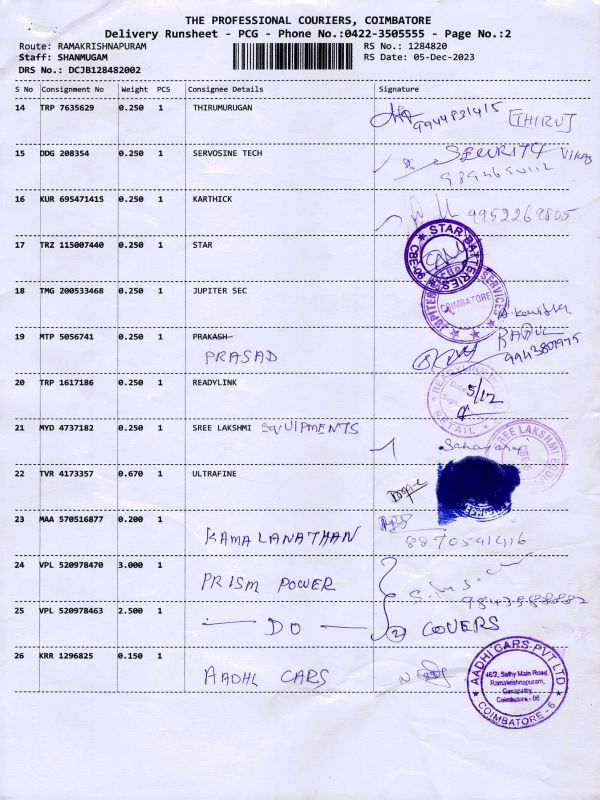 THE PROFESSIONAL COURIERS, COIMBATORE
Delivery Runsheet - PCG - Phone No.:0422-3505555 - Page No.:2
Route: RAMAKRISHNAPURAM RS No.: 1284820
Staff: SHANMUGAM RS Date: 05-Dec-2023
DRS No.: DCJB128482002
S No Consignment No Weight PCS Consignee Details Signature
14 TRP 7635629 0.250 1 THIRUMURUGAN
[THIRU]
15 DDG 208354 0.250 1 SERVOSINE TECH SECURITY VIKAS
16 KUR 695471415 0.250 1 KARTHICK
9952269805
17 TRZ 115007440 0.250 1 STAR
STAR BATTERIES
18 TMG 200533468 0.250 1 JUPITER SEC
JUPITER SERVICES COIMBATORE
19 MTP 5056741 0.250 1 PRAKASH
PRASAD
20 TRP 1617186 0.250 1 READYLINK
READYLINK RETAIL
Date 5/12
Sign
21 MYD 4737182 0.250 1 SREE LAKSHMI EQUIPMENTS
SREE LAKSHMI
22 TVR 4173357 0.670 1 ULTRAFINE
23 MAA 570516877 0.200 1
KAMALANATHAN
8870541416
24 VPL 520978470 3.000 1
PRISM POWER
25 VPL 520978463 2.500 1
DO 2 COVERS
26 KRR 1296825 0.150 1
AADHI CARS
AADHI CARS PVT LTD
46/2, Sathy Main Road,
Ramakrishnapuram,
Ganapathy,
Coimbatore - 06
COIMBATORE - 6